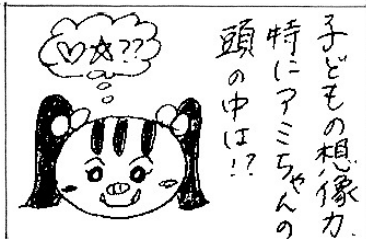 子どもの想像力、
特にアミちゃんの
頭の中は!?
♡☆??